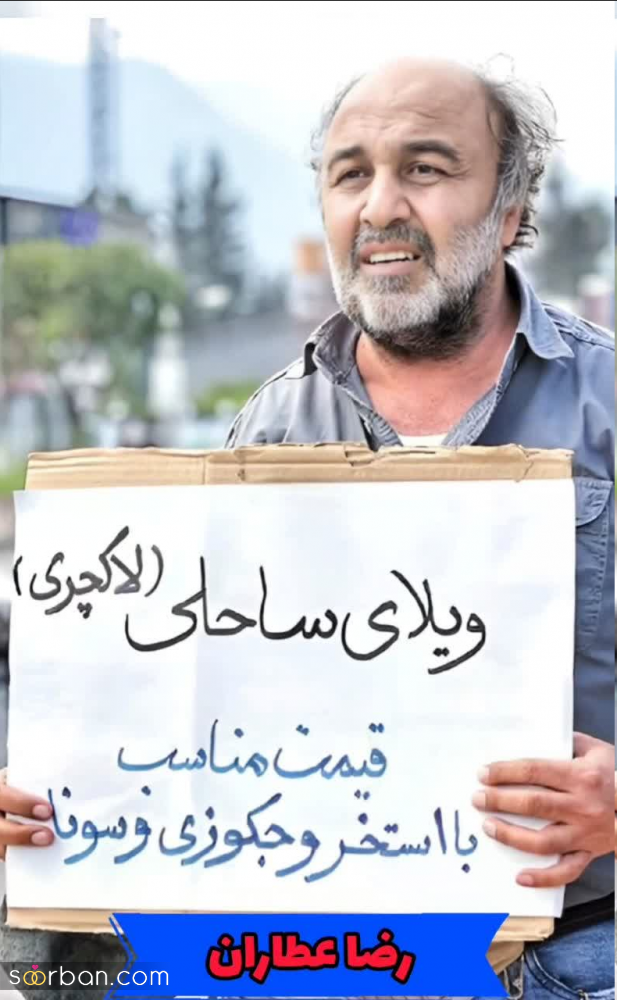 ویلای ساحلی (لاکچری)
قیمت مناسب
با استخر و جکوزی و سونا
رضا عطاران
soorban.com